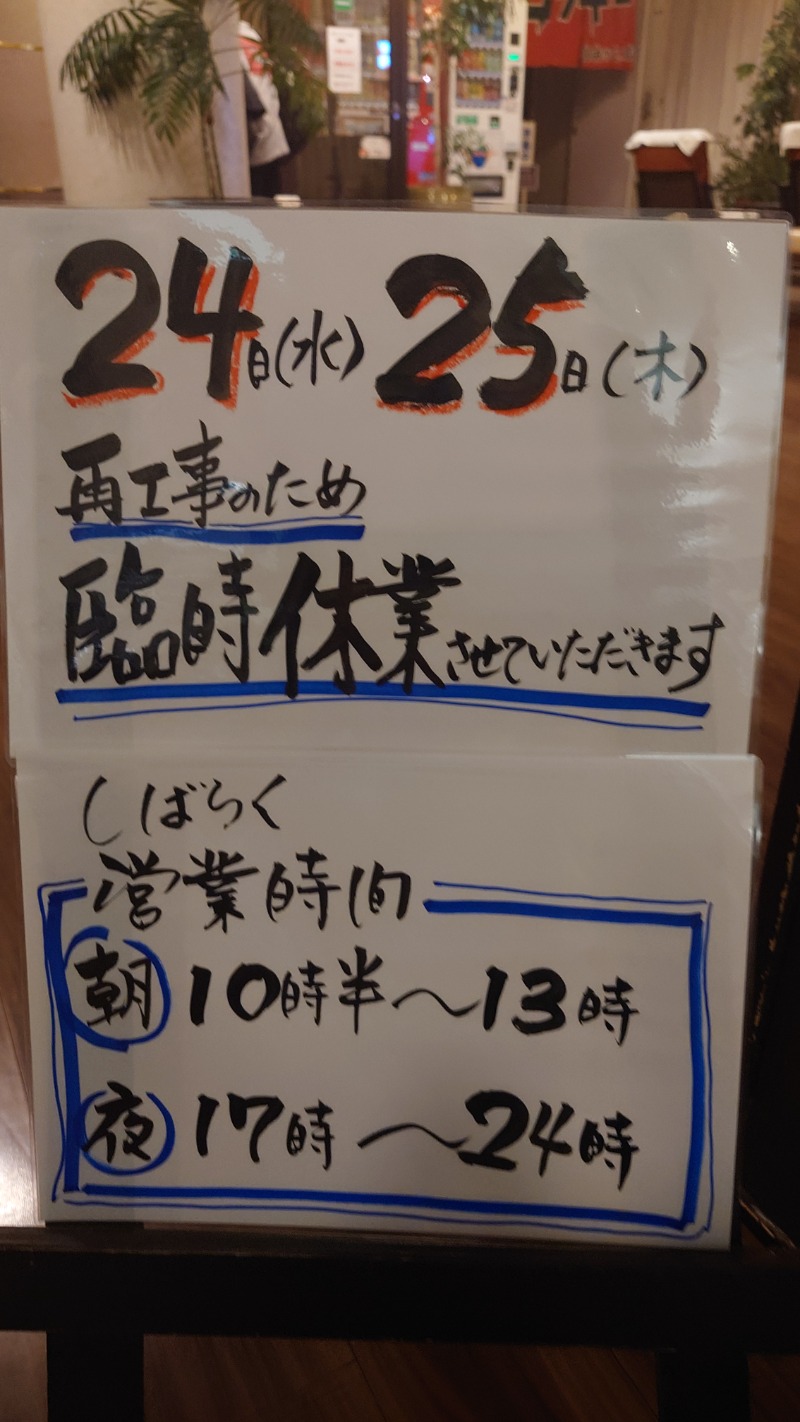 24日(水) 25日(木)
再工事のため
臨時休業させていただきます
しばらく
営業時間
朝 10時半～13時
夜 17時～24時